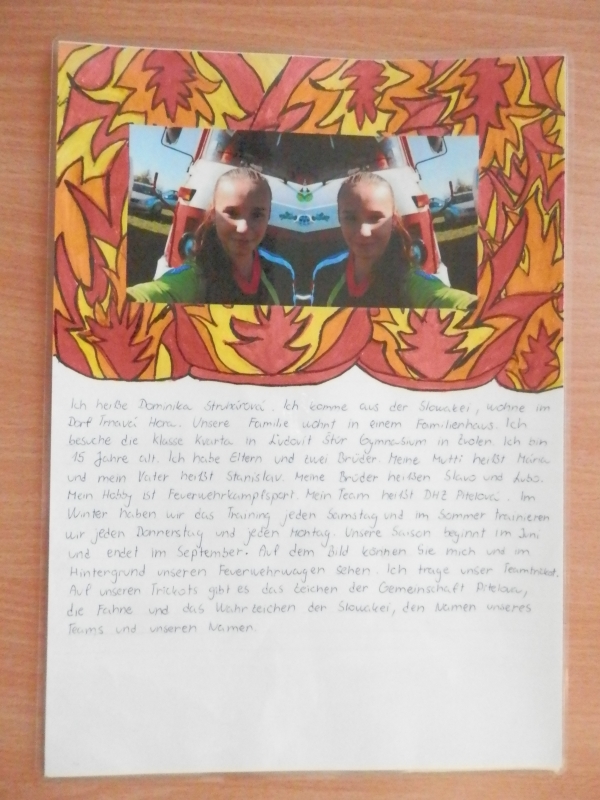 Ich heiße Dominika Strunárová. Ich komme aus der Slowakei, wohne im
Dorf Trnavá Hora. Unsere Familie wohnt in einem Familienhaus. Ich
besuche die Klasse Kvarta in Ľudovít Štúr Gymnasium in Zvolen. Ich bin
15 Jahre alt. Ich habe Eltern und zwei Brüder. Meine Mutti heißt Mária
und mein Vater heißt Stanislav. Meine Brüder heißen Slavo und Ľubo.
Mein Hobby ist Feuerwehrkampfsport. Mein Team heißt DHZ Pitelová. Im
Winter haben wir das Training jeden Samstag und im Sommer trainieren
wir jeden Donnerstag und jeden Montag. Unsere Saison beginnt im Juni
und endet im September. Auf dem Bild können Sie mich und im
Hintergrund unseren Feuerwehrwagen sehen. Ich trage unser Teamtrikot.
Auf unseren Trickots gibt es das Zeichen der Gemeinschaft Pitelová,
die Fahne und das Wahrzeichen der Slowakei, den Namen unseres
Teams und unseren Namen.